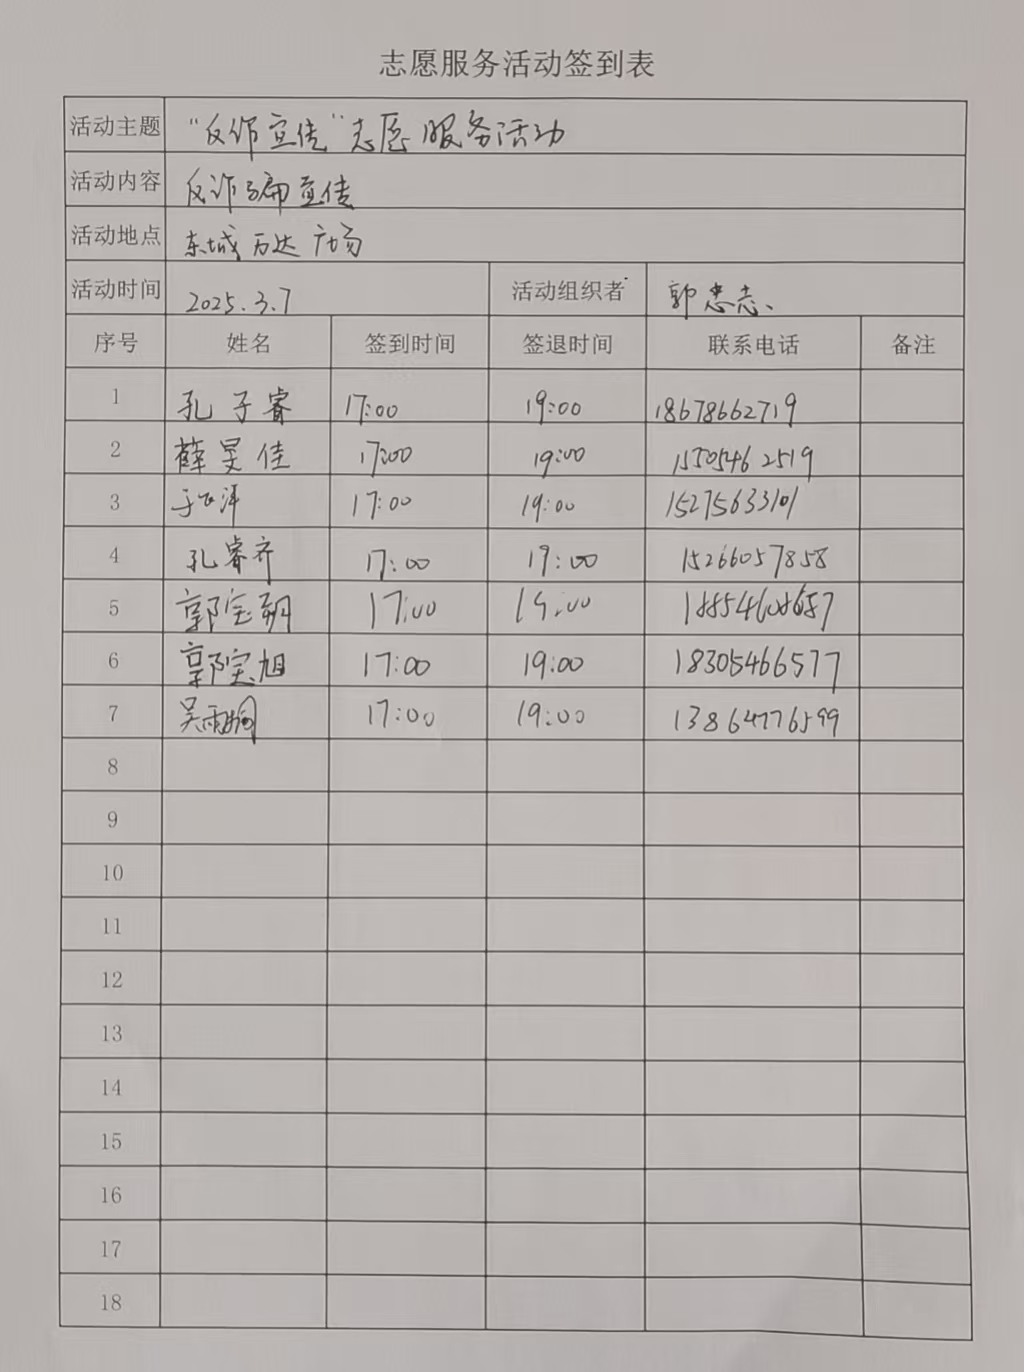 志愿服务活动签到表
活动主题 "反诈宣传"志愿服务活动
活动内容 反诈骗宣传
活动地点 东城万达广场
活动时间 2025.3.7 活动组织者 郭忠志
序号 姓名 签到时间 签退时间 联系电话 备注
1 孔子睿 17:00 19:00 18678662719
2 薛昊佳 17:00 19:00 15505462519
3 17:00 19:00 15275633101
4 孔睿齐 17:00 19:00 15266057858
5 郭宝朔 17:00 19:00 18854608687
6 郭宝旭 17:00 19:00 18305466577
7 吴雨桐 17:00 19:00 13864776599
8
9
10
11
12
13
14
15
16
17
18